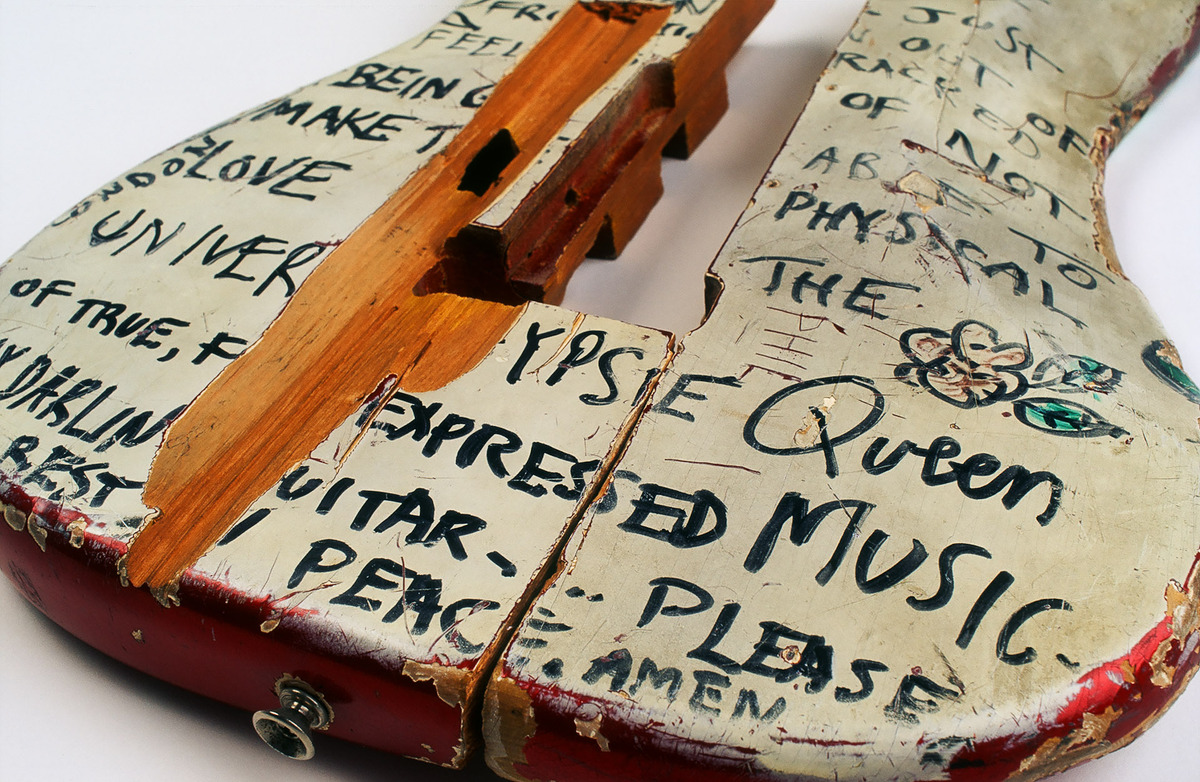 JUST
FR OUT OF
RACKED
FEEL OF NOT
BEING ABLE TO
MAKE T PHYSICAL
LONDON
LOVE TO THE
THE
UNIVER YPSIE Queen
OF TRUE, F EXPRESSED MUSIC.
Y DARLIN UITAR- PLEASE
REST I PEACE. AMEN